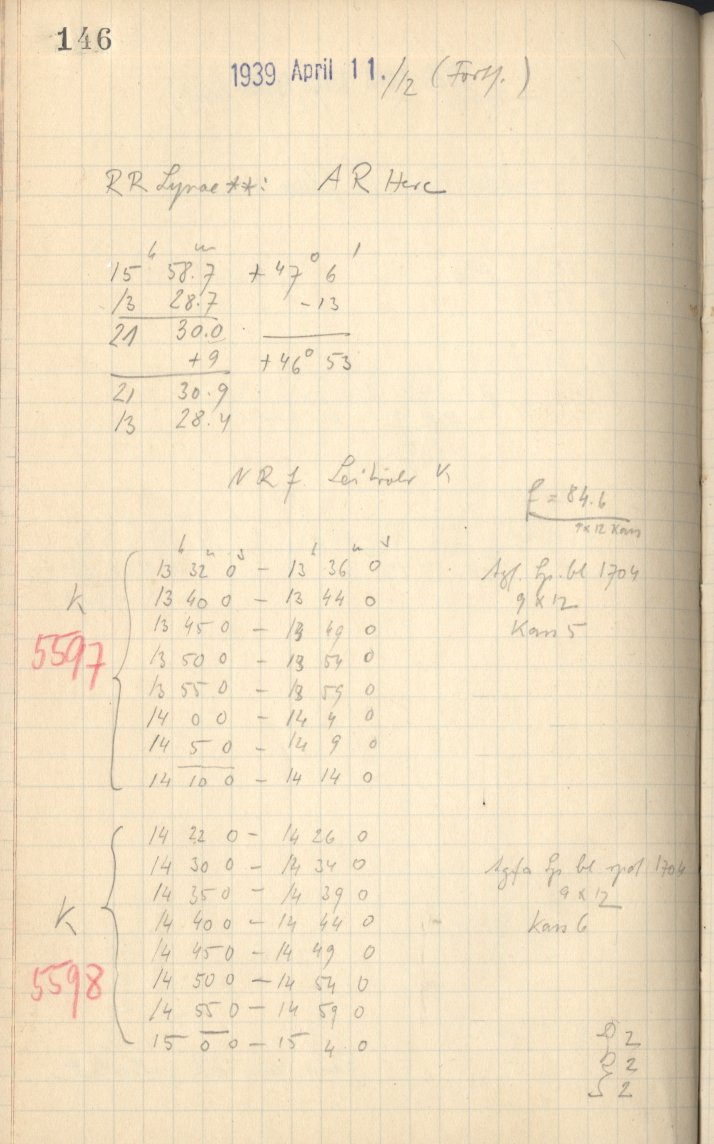 146
1939 April 11./12 (Forts.)
RR Lyrae **: AR Herc
15 h 58.7 m +47° 6'
13 28.7 -13
21 30.0
+9 +46° 53
21 30.9
13 28.4
f = 84.6
9x12 Kass
h m s h m s
13 32 0 - 13 36 0 Agf. Sp. bl 1704
K 13 40 0 - 13 44 0 9 x 12
13 45 0 - 13 49 0 Kass 5
5597 13 50 0 - 13 54 0
13 55 0 - 13 59 0
14 0 0 - 14 4 0
14 5 0 - 14 9 0
14 10 0 - 14 14 0
14 22 0 - 14 26 0
14 30 0 - 14 34 0 Agfa Sp bl 1704
14 35 0 - 14 39 0 9 x 12
K 14 40 0 - 14 44 0 Kass 6
14 45 0 - 14 49 0
5598 14 50 0 - 14 54 0
14 55 0 - 14 59 0
15 0 0 - 15 4 0
2
2
S 2